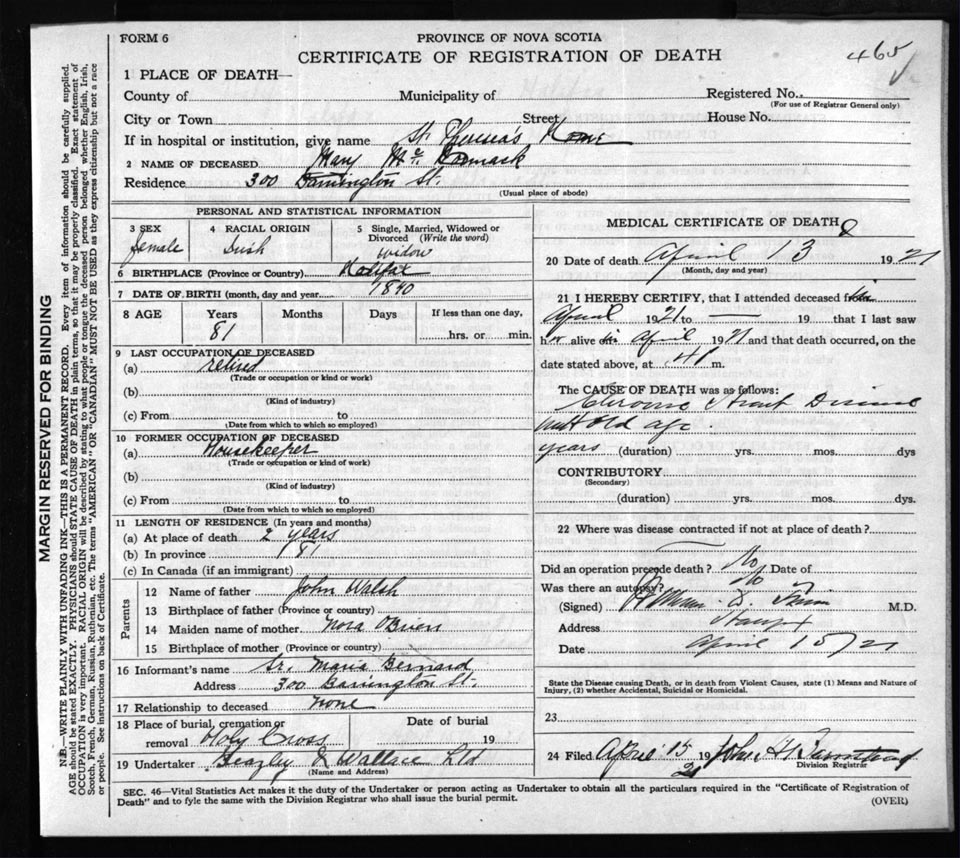 FORM 6
PROVINCE OF NOVA SCOTIA
CERTIFICATE OF REGISTRATION OF DEATH
465
1 PLACE OF DEATH—
County of Municipality of Registered No.
(For use of Registrar General only)
City or Town Street House No.
If in hospital or institution, give name St. Theresa's Home
2 NAME OF DECEASED Mary McCormack
Residence 300 Barrington St.
(Usual place of abode)
PERSONAL AND STATISTICAL INFORMATION
3 SEX 4 RACIAL ORIGIN 5 Single, Married, Widowed or
Divorced (Write the word)
female Irish widow
6 BIRTHPLACE (Province or Country) Halifax
7 DATE OF BIRTH (month, day and year) 1840
8 AGE Years Months Days If less than one day,
81 hrs. or min.
9 LAST OCCUPATION OF DECEASED
(a) retired
(Trade or occupation or kind of work)
(b)
(Kind of industry)
(c) From to
(Date from which to which so employed)
10 FORMER OCCUPATION OF DECEASED
(a) Housekeeper
(Trade or occupation or kind of work)
(b)
(Kind of industry)
(c) From to
(Date from which to which so employed)
11 LENGTH OF RESIDENCE (In years and months)
(a) At place of death 2 years
(b) In province 81
(c) In Canada (if an immigrant)
Parents
12 Name of father John Walsh
13 Birthplace of father (Province or country)
14 Maiden name of mother Nora O'Brien
15 Birthplace of mother (Province or country)
16 Informant's name Sr. Maria Bernard
Address 300 Barrington St.
17 Relationship to deceased none
18 Place of burial, cremation or Date of burial
removal Holy Cross 19
19 Undertaker Beazley & Wallace Ltd
(Name and Address)
MEDICAL CERTIFICATE OF DEATH
20 Date of death April 13 1921
(Month, day and year)
21 I HEREBY CERTIFY, that I attended deceased
April 1921 to — 19 that I last saw
h alive April 1921 and that death occurred, on the
date stated above, at m.
The CAUSE OF DEATH was as follows:
Chronic Heart Disease
old age
years (duration) yrs. mos. dys
CONTRIBUTORY
(Secondary)
(duration) yrs. mos. dys.
22 Where was disease contracted if not at place of death?
Did an operation precede death? No Date of
Was there an autopsy? No
(Signed) M.D.
Address
Date April 15/21
State the Disease causing Death, or in deaths from Violent Causes, state (1) Means and Nature of
Injury, (2) whether Accidental, Suicidal or Homicidal.
23
24 Filed April 15 1921 John
Division Registrar
SEC. 46—Vital Statistics Act makes it the duty of the Undertaker or person acting as Undertaker to obtain all the particulars required in the "Certificate of Registration of
Death" and to fyle the same with the Division Registrar who shall issue the burial permit.
(OVER)
MARGIN RESERVED FOR BINDING
N.B.—WRITE PLAINLY WITH UNFADING INK—THIS IS A PERMANENT RECORD. Every item of information should be carefully supplied.
AGE should be stated EXACTLY. PHYSICIANS should STATE CAUSE OF DEATH in plain terms, so that it may be properly classified. Exact statement of
OCCUPATION is very important. RACIAL ORIGIN will be described by stating to what people or tongue the deceased person belonged whether English, Irish,
Scotch, French, German, Russian, Ruthenian, etc. The terms "AMERICAN" OR "CANADIAN" MUST NOT BE USED as they express citizenship but not a race
or people. See instructions on back of Certificate.